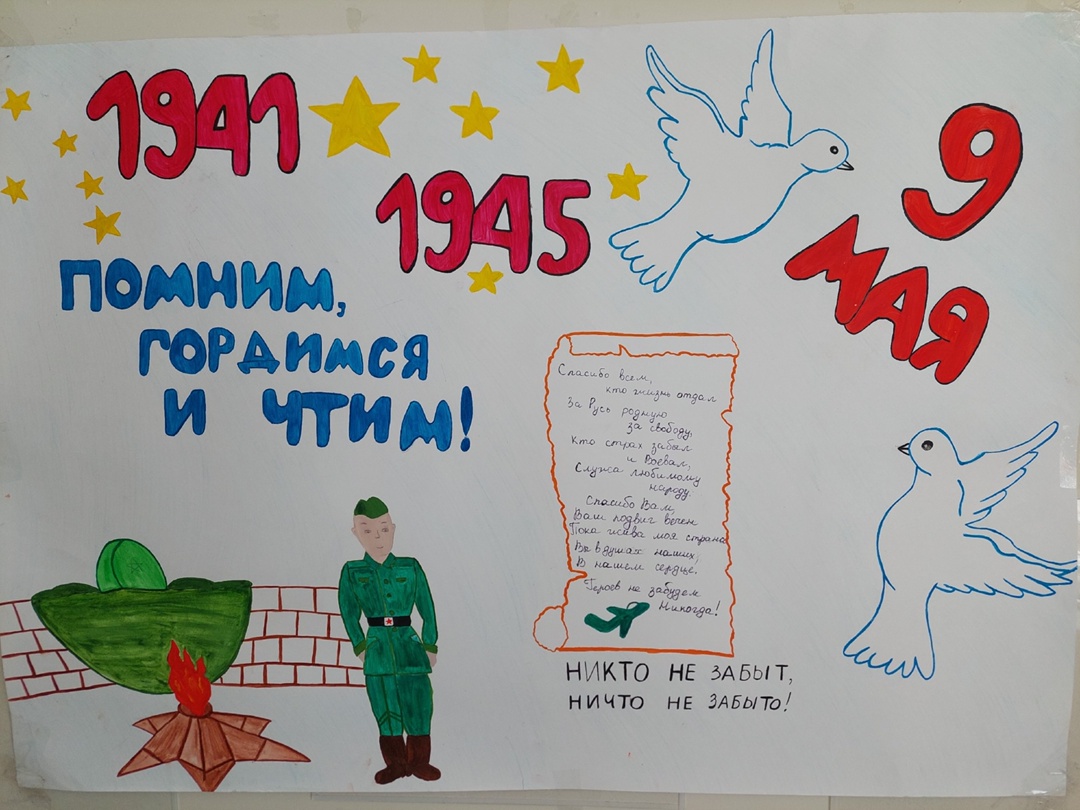 1941
1945
9
МАЯ
ПОМНИМ,
ГОРДИМСЯ
И ЧТИМ!
Спасибо всем,
кто жизнь отдал
За Русь родную
за свободу,
кто страх забыл
и Воевал,
Служа любимому
народу.
Спасибо Вам,
Ваш подвиг вечен
Пока жива моя страна
Вы в душах наших,
В нашем сердце.
Героев не забудем
Никогда!
НИКТО НЕ ЗАБЫТ,
НИЧТО НЕ ЗАБЫТО!